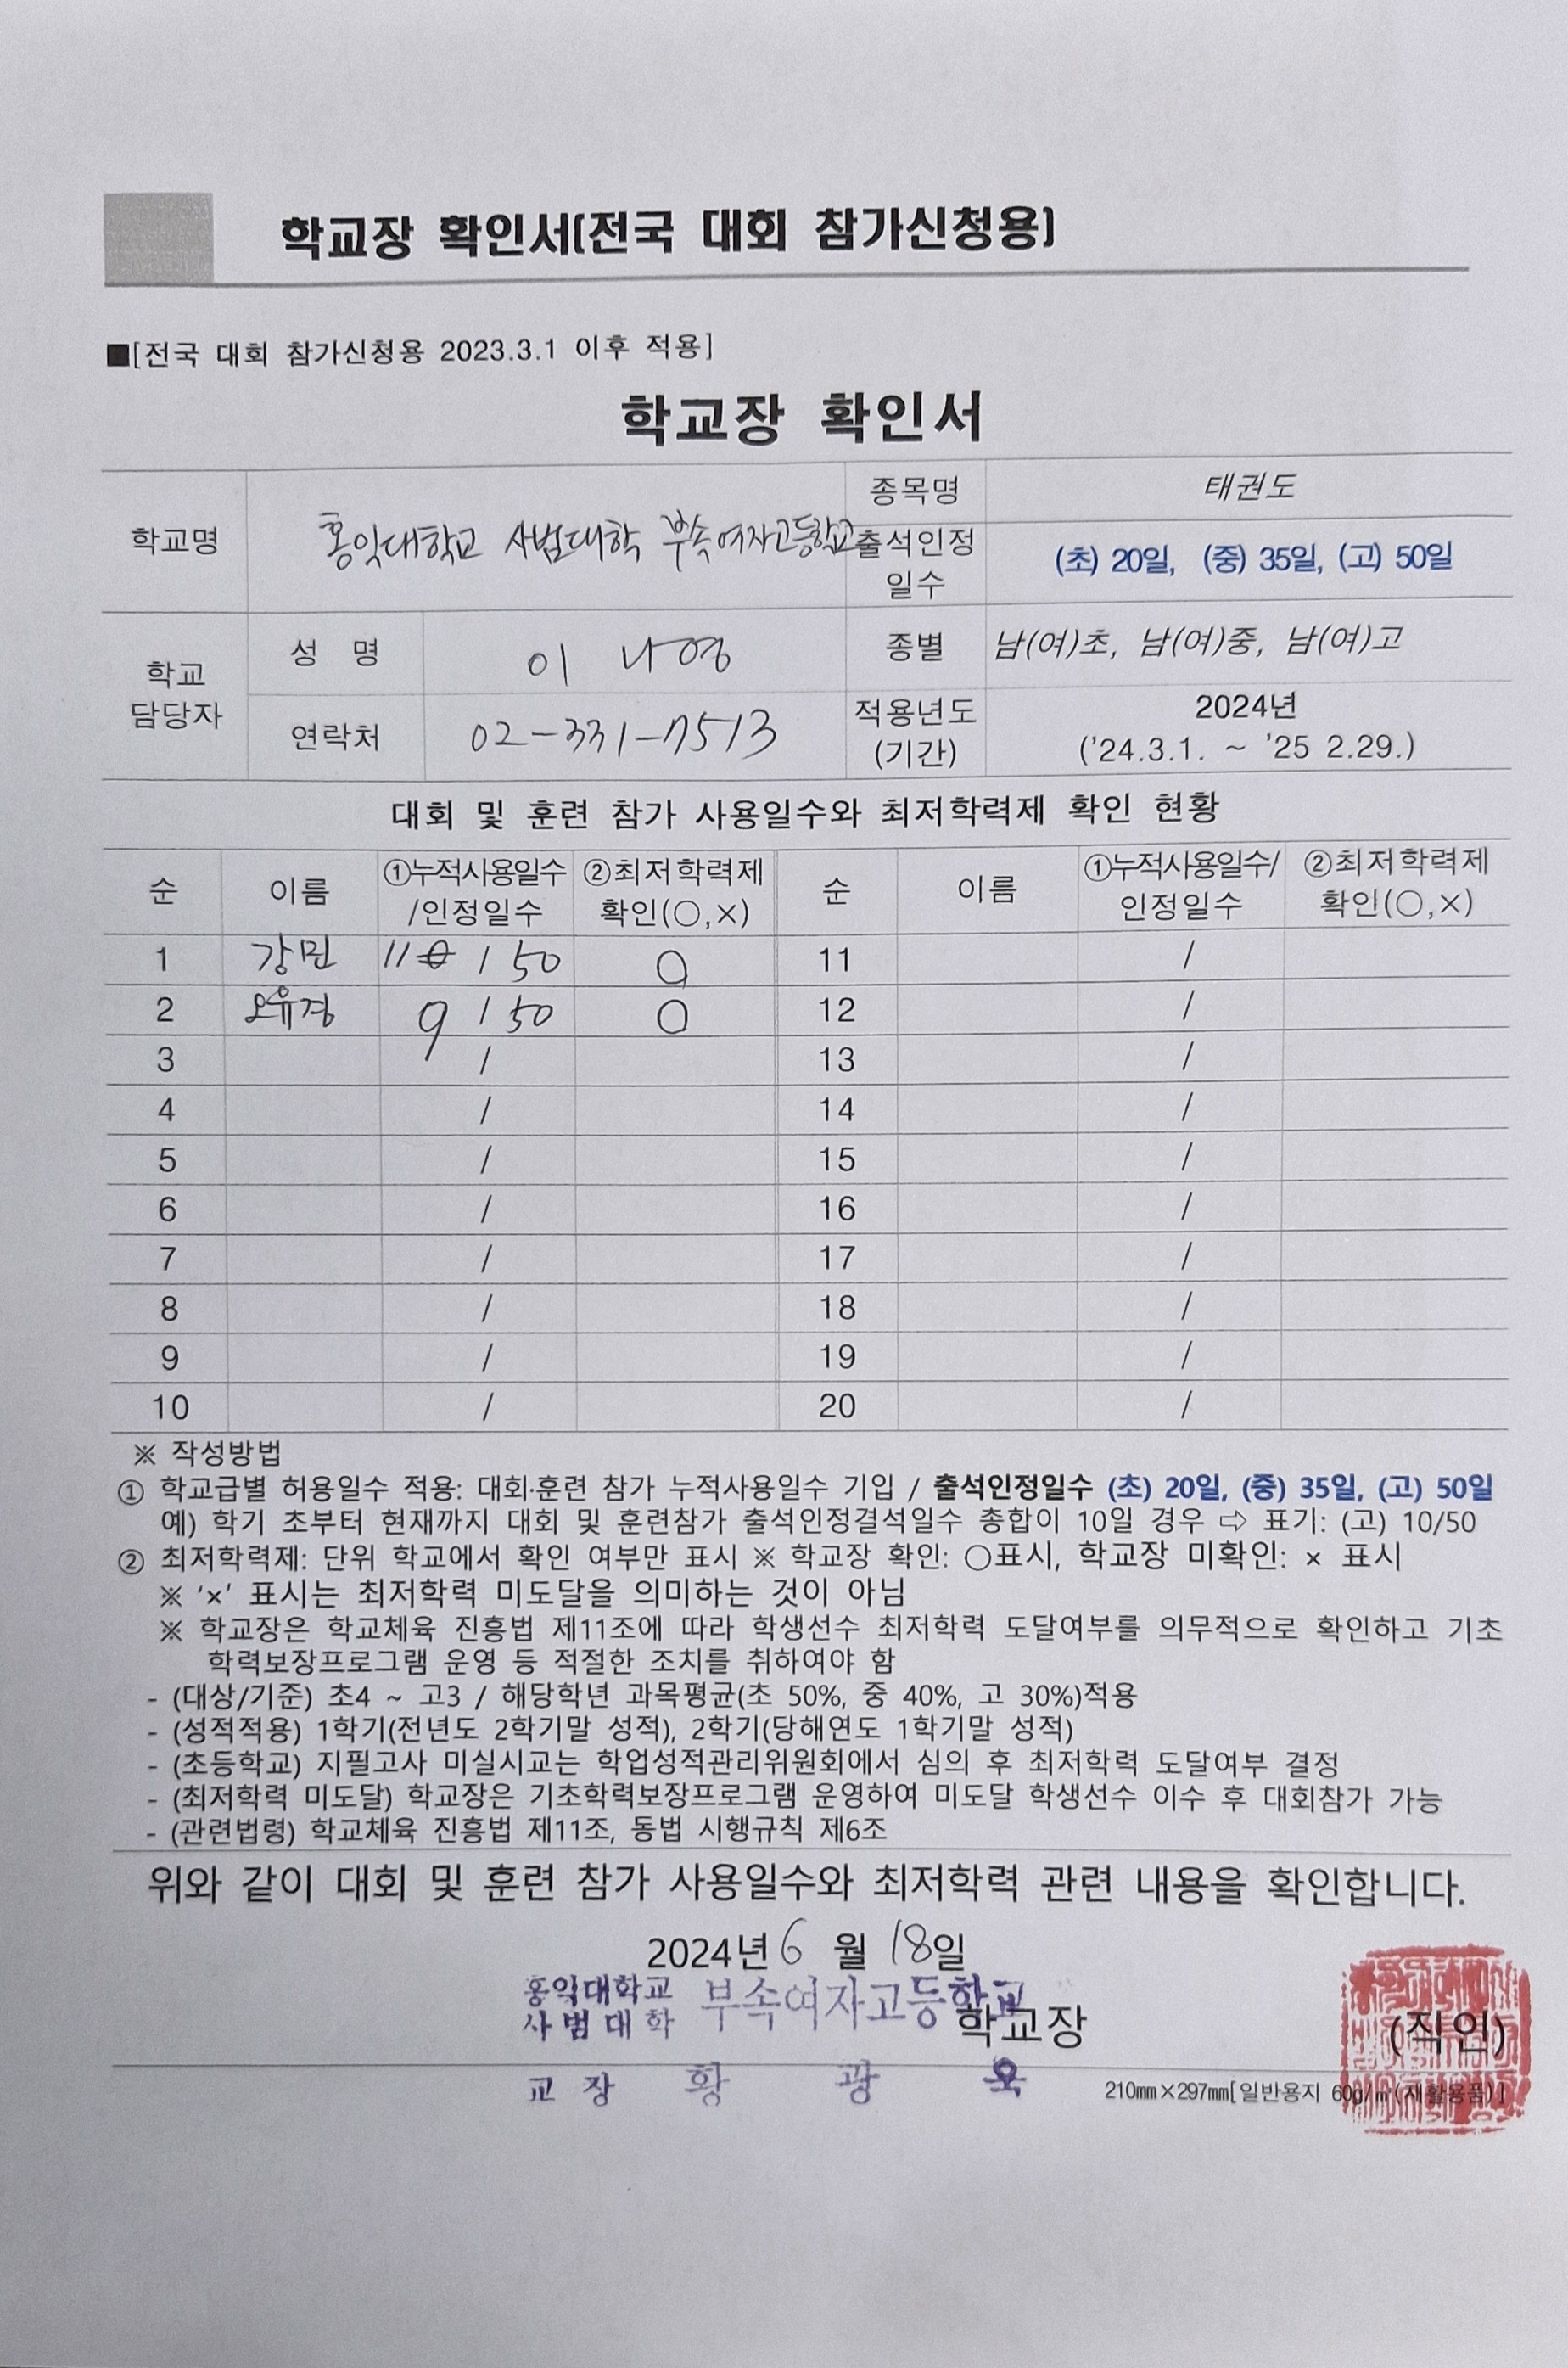 학교장 확인서(전국 대회 참가신청용)
■[전국 대회 참가신청용 2023.3.1 이후 적용]
학교장 확인서
학교명 홍익대학교 사범대학 부속여자고등학교 종목명 태권도
출석인정 일수 (초) 20일, (중) 35일, (고) 50일
학교 담당자 성 명 이 나영 종별 남(여)초, 남(여)중, 남(여)고
연락처 02-331-7513 적용년도 (기간) 2024년 ('24.3.1. ~ '25 2.29.)
대회 및 훈련 참가 사용일수와 최저학력제 확인 현황
순 이름 ①누적사용일수 /인정일수 ②최저학력제 확인(○,×) 순 이름 ①누적사용일수/ 인정일수 ②최저학력제 확인(○,×)
1 강민 11 / 50 ○ 11 /
2 오유경 9 / 50 ○ 12 /
3 / 13 /
4 / 14 /
5 / 15 /
6 / 16 /
7 / 17 /
8 / 18 /
9 / 19 /
10 / 20 /
※ 작성방법
① 학교급별 허용일수 적용: 대회·훈련 참가 누적사용일수 기입 / 출석인정일수 (초) 20일, (중) 35일, (고) 50일
예) 학기 초부터 현재까지 대회 및 훈련참가 출석인정결석일수 총합이 10일 경우 ⇨ 표기: (고) 10/50
② 최저학력제: 단위 학교에서 확인 여부만 표시 ※ 학교장 확인: ○표시, 학교장 미확인: × 표시
※ '×' 표시는 최저학력 미도달을 의미하는 것이 아님
※ 학교장은 학교체육 진흥법 제11조에 따라 학생선수 최저학력 도달여부를 의무적으로 확인하고 기초
학력보장프로그램 운영 등 적절한 조치를 취하여야 함
- (대상/기준) 초4 ~ 고3 / 해당학년 과목평균(초 50%, 중 40%, 고 30%)적용
- (성적적용) 1학기(전년도 2학기말 성적), 2학기(당해연도 1학기말 성적)
- (초등학교) 지필고사 미실시교는 학업성적관리위원회에서 심의 후 최저학력 도달여부 결정
- (최저학력 미도달) 학교장은 기초학력보장프로그램 운영하여 미도달 학생선수 이수 후 대회참가 가능
- (관련법령) 학교체육 진흥법 제11조, 동법 시행규칙 제6조
위와 같이 대회 및 훈련 참가 사용일수와 최저학력 관련 내용을 확인합니다.
2024년 6 월 18일
홍익대학교 사범대학 부속여자고등학교 학교장 (직인)
교 장 황 광 욱
210mm×297mm[일반용지 60g/㎡(재활용품)]